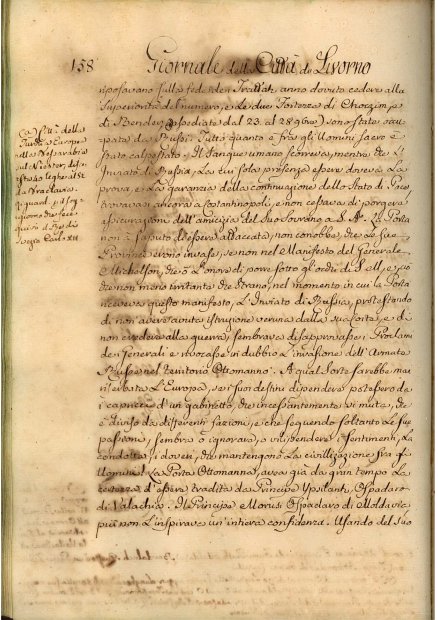 158 Giornale della Città di Livorno
riposavano sulla fede dei Trattati anno dovuto cedere alla
superiorità del numero, e le due Fortezze di Choczim, e
di Bender assediate dal 23. al 28. sono state occu=
pate da Russi. Tutto quanto è fra gli Uomini sacro è
stato calpestato. Il Sangue umano scorreva, mentre che L'
Inviato di Russia, La cui sola presenza essere doveva La
prova, e La garanzia della continuazione dello Stato di Pace,
trovavasi ancora a Costantinopoli, e non cessava di porgere
assicurazioni dell'amicizia del Suo Sovrano a S. A. La Porta
non à saputo di essere attaccata, non conobbe, che Le Sue
Provincie erano invase, se non nel Manifesto del Generale
Michelson, che ò L'onore di porre sotto gli occhi di
che non meno irritante che strano, nel momento in cui la Porta
riceveva questo manifesto, L'Inviato di Russia, protestando
di non aver avuta istruzione veruna dalla sua Corte, e di
non credere alla guerra, sembrava disapprovasse i Proclami
de' Generali e rivocasse in dubbio L'invasione dell'Armata
Russa nel territorio Ottomanno. A qual sorte sarebbe mai
riserbata L'Europa, se i suoi destini dipendere potessero da
i capricci d'un gabinetto, che incessantemente si muta, che
è diviso da differenti fazioni, e che seguendo soltanto Le sue
passioni, sembra o ignorare, o vilipendere i sentimenti, La
condotta, i doveri, che mantengono La civilizzazione fra gli
Uomini? La Porta Ottomanna, avea già da gran tempo La
certezza d'essere tradita da Principe Ypsilanti, Ospodaro
di Valachia. Il Principe Morusi Ospodaro di Moldavia
più non L'inspirava un'intiera confidenza. Usando del Suo
Città della
Turchia Europea
alla Bessarabia
sul Niester, di=
stante Leghe
Braclavia.
Riguard. pel sog=
giorno che fece
quivi il Re di
Svezia Carlo XII